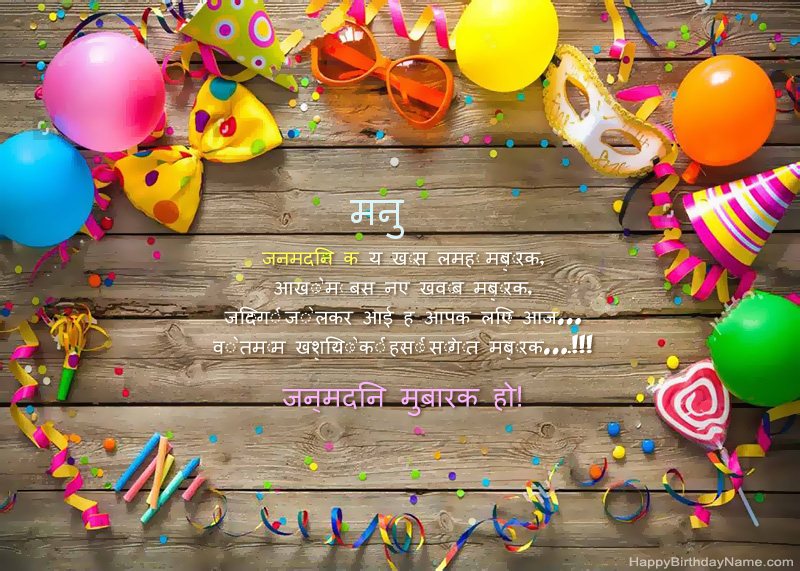 मनु
जनमदिन क य खास लमहा मबारक,
आखों में बस नए खवाब मबारक,
जिंदगी जो लेकर आई ह आपक लिए आज...
वो तमाम खुशियों की हसीं सौगात मबारक....!!!
जन्मदिन मुबारक हो!
HappyBirthdayName.com